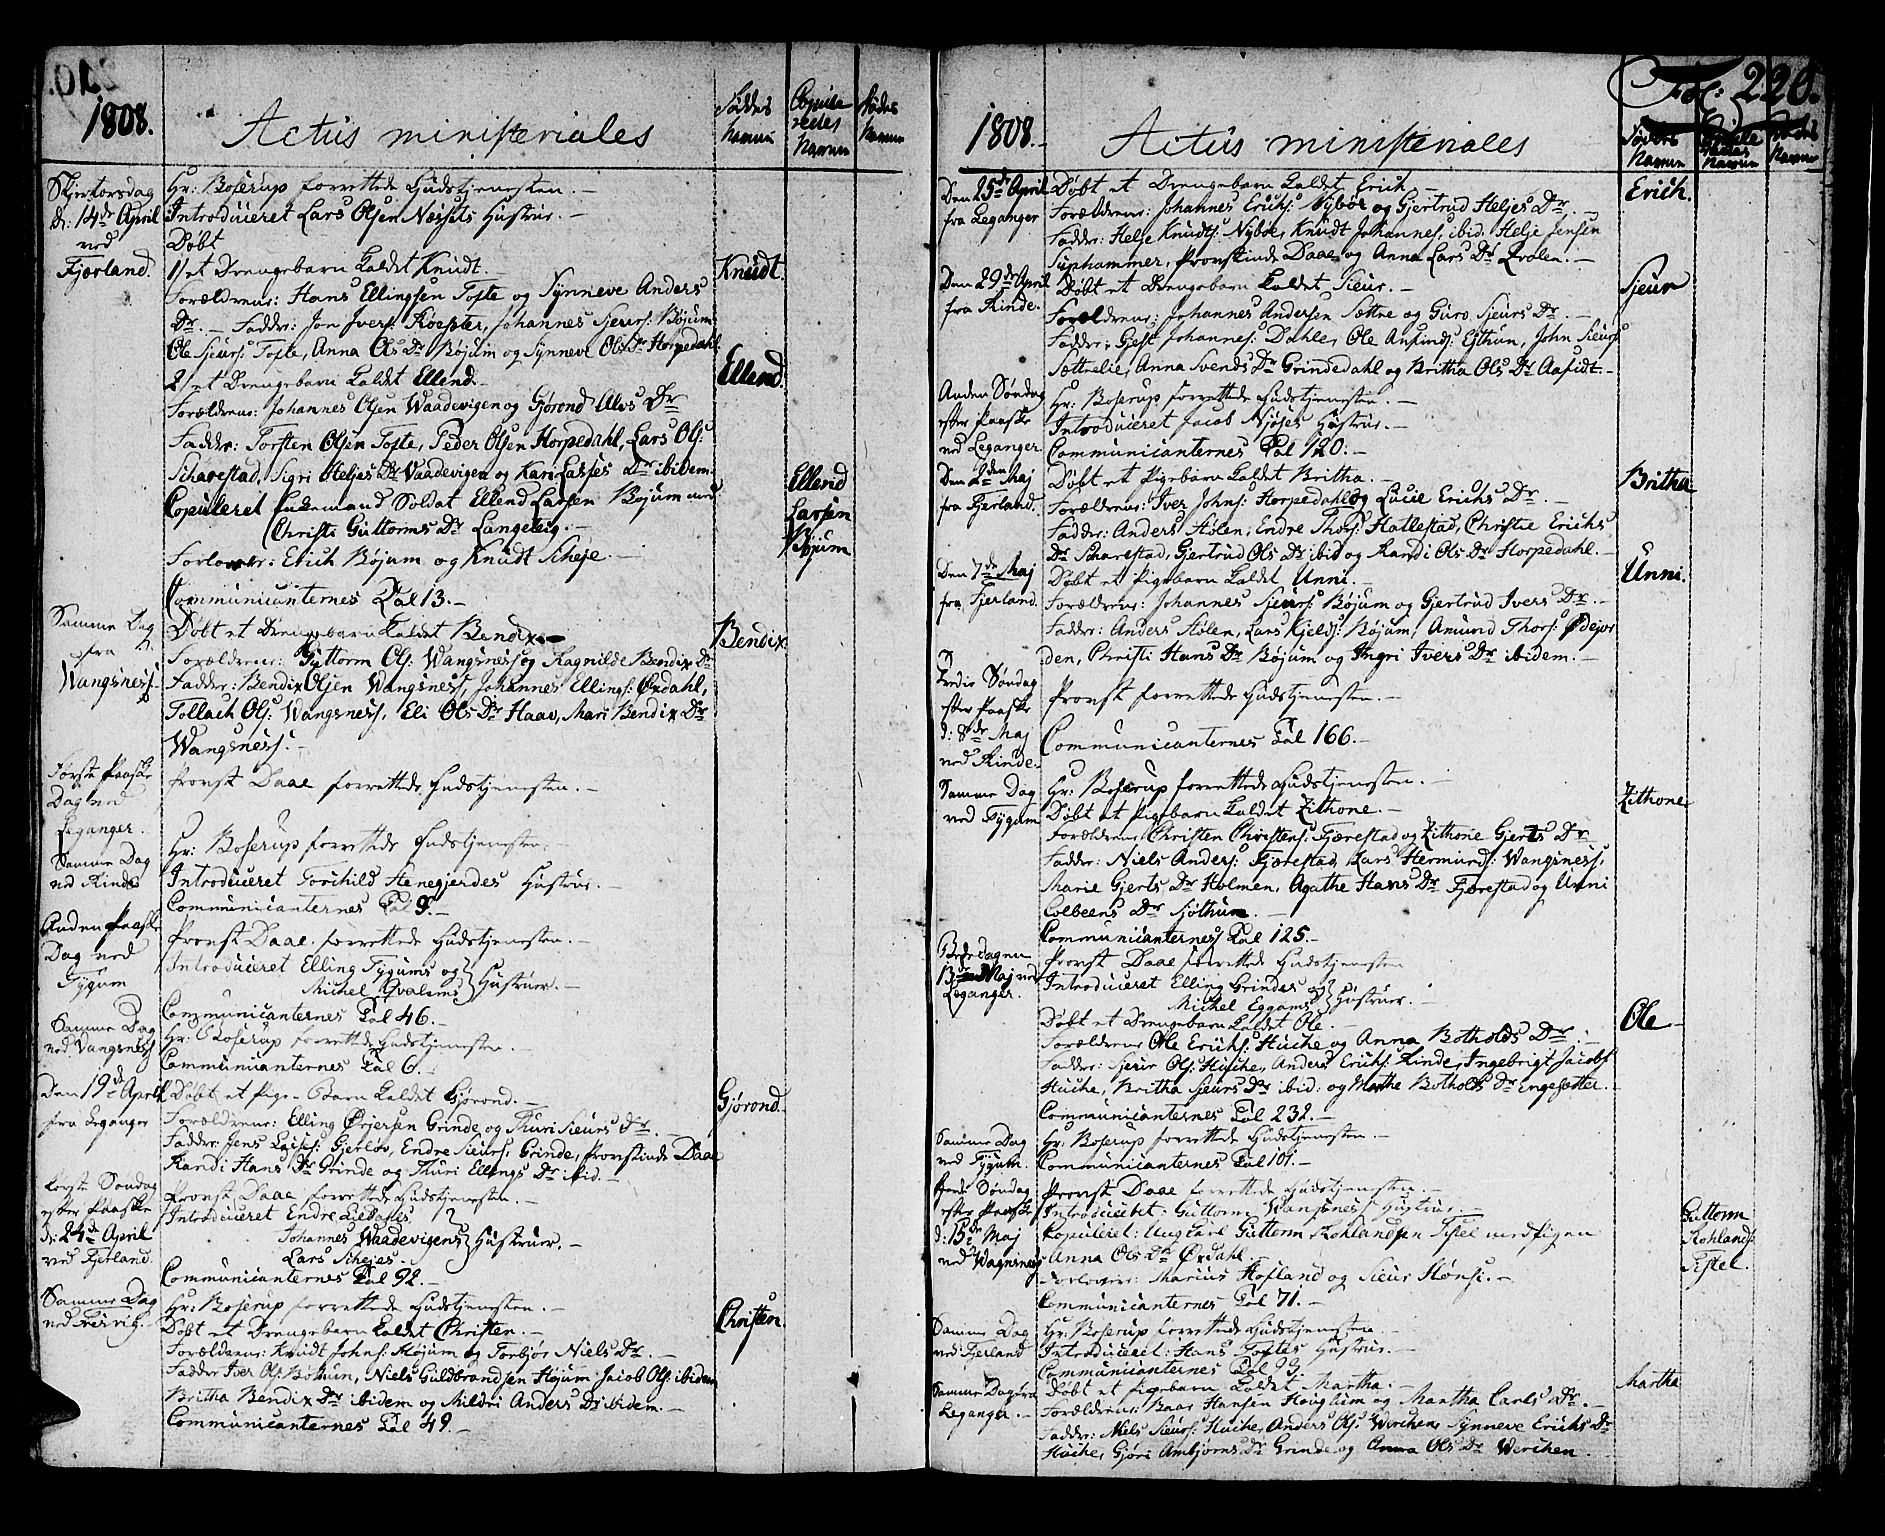 1808.
Actus ministeriales
Fødtes Navne
Copuleredes Navne
Dødes Navne
Skjertorsdag
d: 14de April
ved
Fjærland.
Hr: Boserup forrettede Gudstjenesten. –
Introduceret Lars Olsen Næssets Hustrue. –
Døbt
1/ et Drengebarn kaldet Knudt. –
Knudt.
Forældrene: Hans Ellingsen Tofte og Synneve Anders
Dr. – Faddr: Jon Ivers: Johannes Sjeurs: Bøjum
Ole Sjeurs: Tofte, Anna Ols Dr Bøjum og Synneve Ols Dr Horpedahl.
2/ et Drengebarn kaldet Ellend. –
Ellend.
Forældrene: Johannes Olsen Waadevigen og Gjørond Alvs Dr
Faddr: Torsten Olsen Tofte, Peder Olsen Horpedahl, Lars Ols:
Scharestad, Sigri Heljes Dr Waadevigen og Kari Lasses Dr ibidem.
Copuleret Enkemand Soldat Ellend Larsen Bøjum med
Christi Guttorms Dr Langeleig. –
Ellend
Larsen
Bøjum
Forlovere: Erich Bøjum og Knudt Scheje. –
Communicanternes Tal 13. –
Samme Dag
fra
Wangsness.
Døbt et Drengebarn kaldet Bendix. –
Bendix.
Forældrene: Guttorm Ols: Wangsness og Ragnilde Bendix Dr
Faddr: Bendix Olsen Wangsness, Johannes Ellings: Ørdahl,
Tollach Ols: Wangsness, Eli Ols Dr Haav, Mari Bendix Dr
Wangsness. –
Første Paaske
Dag ved
Leganger.
Provst Daae forrettede Gudstjenesten. –
Samme Dag
ved Rinde
Hr: Boserup forrettede Gudstjenesten. –
Introduceret Torchild Henegjerdes Hustrue. –
Communicanternes Tal 9. –
Anden Paaske
Dag ved
Tygum
Provst Daae forrettede Gudstjenesten. –
Introduceret Elling Tygums og
Michel Qvalems } Hustruer. –
Communicanternes Tal 46. –
Samme Dag
ved Vangsness
Hr: Boserup forrettede Gudstjenesten.
Communicanternes Tal 6. –
Den 19de April
fra Leganger
Døbt et Pige-Barn kaldet Gjørond. –
Gjørond.
Forældrene: Elling Ørjersen Grinde og Thuri Sieurs Dr. –
Faddr: Jens Gjerløv, Endre Sieurs: Grinde, Provstinde Daae
Randi Hans Dr Grinde og Thuri Ellings Dr: ibid. –
Første Søndag
efter Paaske
d: 24de April
ved Fjerland.
Provst Daae forrettede Gudstjenesten. –
Introduceret Endre
Johannes Waadevigens } Hustruer. –
Lars Schejes
Communicanternes Tal 92. –
Samme Dag
ved
Hr: Boserup forrettede Gudstjenesten. –
Døbt et Drengebarn kaldet Christen. –
Christen.
Forældrene: Knudt Johns: Højum og Torbjør Niels Dr. –
Faddr Iver Ols: Bøthun, Niels Guldbrandsen Højum Jacob Ols: ibidem
Britha Bendix Dr ibidem og Mildri Anders Dr ibidem. –
Communicanternes Tal 49. –
Fol: 220.
1808. –
Actus ministeriales
Fødtes Navne
Copuleredes Navne
Dødes Navne
Den 25de April
fra Leganger
Døbt et Drengebarn kaldet Erich –
Erich.
Forældrene: Johannes Erichs: Nybøe og Gjertrud Heljes Dr. –
Faddr: Helje Knudts: Nybøe, Knudt Johannes: ibid. Helje Jensen
Suphammer, Provstinde Daae og Anna Lars Dr Qvalen. –
Den 29de April
fra Rinde.
Døbt et Drengebarn kaldet Sieur. –
Sjeur
Forældrene: Johannes Andersen Sættre og Giro Sjeurs Dr. –
Faddr: Gjest Johannes: Dahle, Ole Anfinds: Esthun, John Sieurs
Sættrelie, Anna Svends Dr Grindedahl og Britha Ols Dr Aafidt. –
Anden Søndag
efter Paaske
ved Leganger.
Hr: Boserup forrettede Gudstjenesten. –
Introduceret Jacob Njøses Hustrue. –
Communicanternes Tal 120. –
Den 2den Maj
fra Fjerland.
Døbt et Pigebarn kaldet Britha. –
Britha
Forældrene: Iver Johns: Horpedahl og Lucie Erichs Dr. –
Faddr: Anders Hølen, Endre Thors: Hatlestad, Christie Erichs
Dr Scharestad, Gjertrud Ols Dr ibid og Randi Ols Dr Horpedahl. –
Den 7de Maj
fra Fjerland.
Døbt et Pigebarn kaldet Unni. –
Unni.
Forældrene: Johannes Sjeurs: Bøjum og Gjertrud Ivers Dr. –
Faddr: Anders Hølen, Lars Kjelds: Bøjum, Amund Thors: Ødejor
den, Christi Hans Dr Bøjum og Ingri Ivers Dr ibidem. –
Tredie Søndag
efter Paaske
d: 8de Maj
ved Rinde.
Provst forrettede Gudstjenesten. –
Communicanternes Tal 166. –
Samme Dag
ved Tygum
Hr: Boserup forrettede Gudstjenesten. –
Døbt et Pigebarn kaldet Zithone. –
Zithone
Forældrene Christen Christens: Fjærestad og Zithone Gjerts Dr
Faddr: Niels Anders: Fjærestad, Lars Hermunds: Wangsness,
Marie Gjerts Dr Holmen, Agathe Hans Dr Fjærestad og Unni
Colbeens Dr Sjøthun. –
Communicanternes Tal 125. –
Bededagen
13de Maj ved
Leganger.
Provst Daae forrettede Gudstjenesten
Introduceret Elling Grindes og
Michel Eggums } Hustruer. –
Døbt et Drengebarn kaldet Ole. –
Ole
Forældrene Ole Erichs: Huche og Anna Botholds Dr. –
Faddr: Sjeur Ols: Huche, Anders Erichs: Rinde, Ingebrigt Jacobs
Huche, Britha Sieurs Dr ibid: og Marthe Botholds Dr Engesætter.
Communicanternes Tal 232. –
Samme Dag
ved Tygum.
Hr: Boserup forrettede Gudstjenesten. –
Communicanternes Tal 101. –
fjerde Søndag
efter Paaske
d: 15de Maj
ved Wagnsness
Provst Daae forrettede Gudstjenesten. –
Introduceret: Guttorm Wangsness Hustrue. –
Kopuleret: Ungkarl Guttorm Rohlandsen Tistel med Pigen
Anna Ols Dr Ørdahl. –
Guttorm
Rohlands:
Tistel.
Forlovere: Marius Hofland og Sieur Hønsi. –
Communicanternes Tal 71. –
Samme Dag
ved Fjerland
Hr: Boserup forrettede Gudstjenesten. –
Introduceret: Hans Toftes Hustrue. –
Communicanternes Tal 29. –
Samme Dag fra
Leganger. –
Døbt et Pigebarn kaldet Martha. –
Martha
Forældrene: Baar Hansen Houglum og Martha Carls Dr. –
Faddr: Niels Sieurs: Huche, Anders Ols: Werchen, Synneve Erichs Dr
Huche, Gjøri Ambjørns Dr Grinde og Anna Ols Dr Werchen